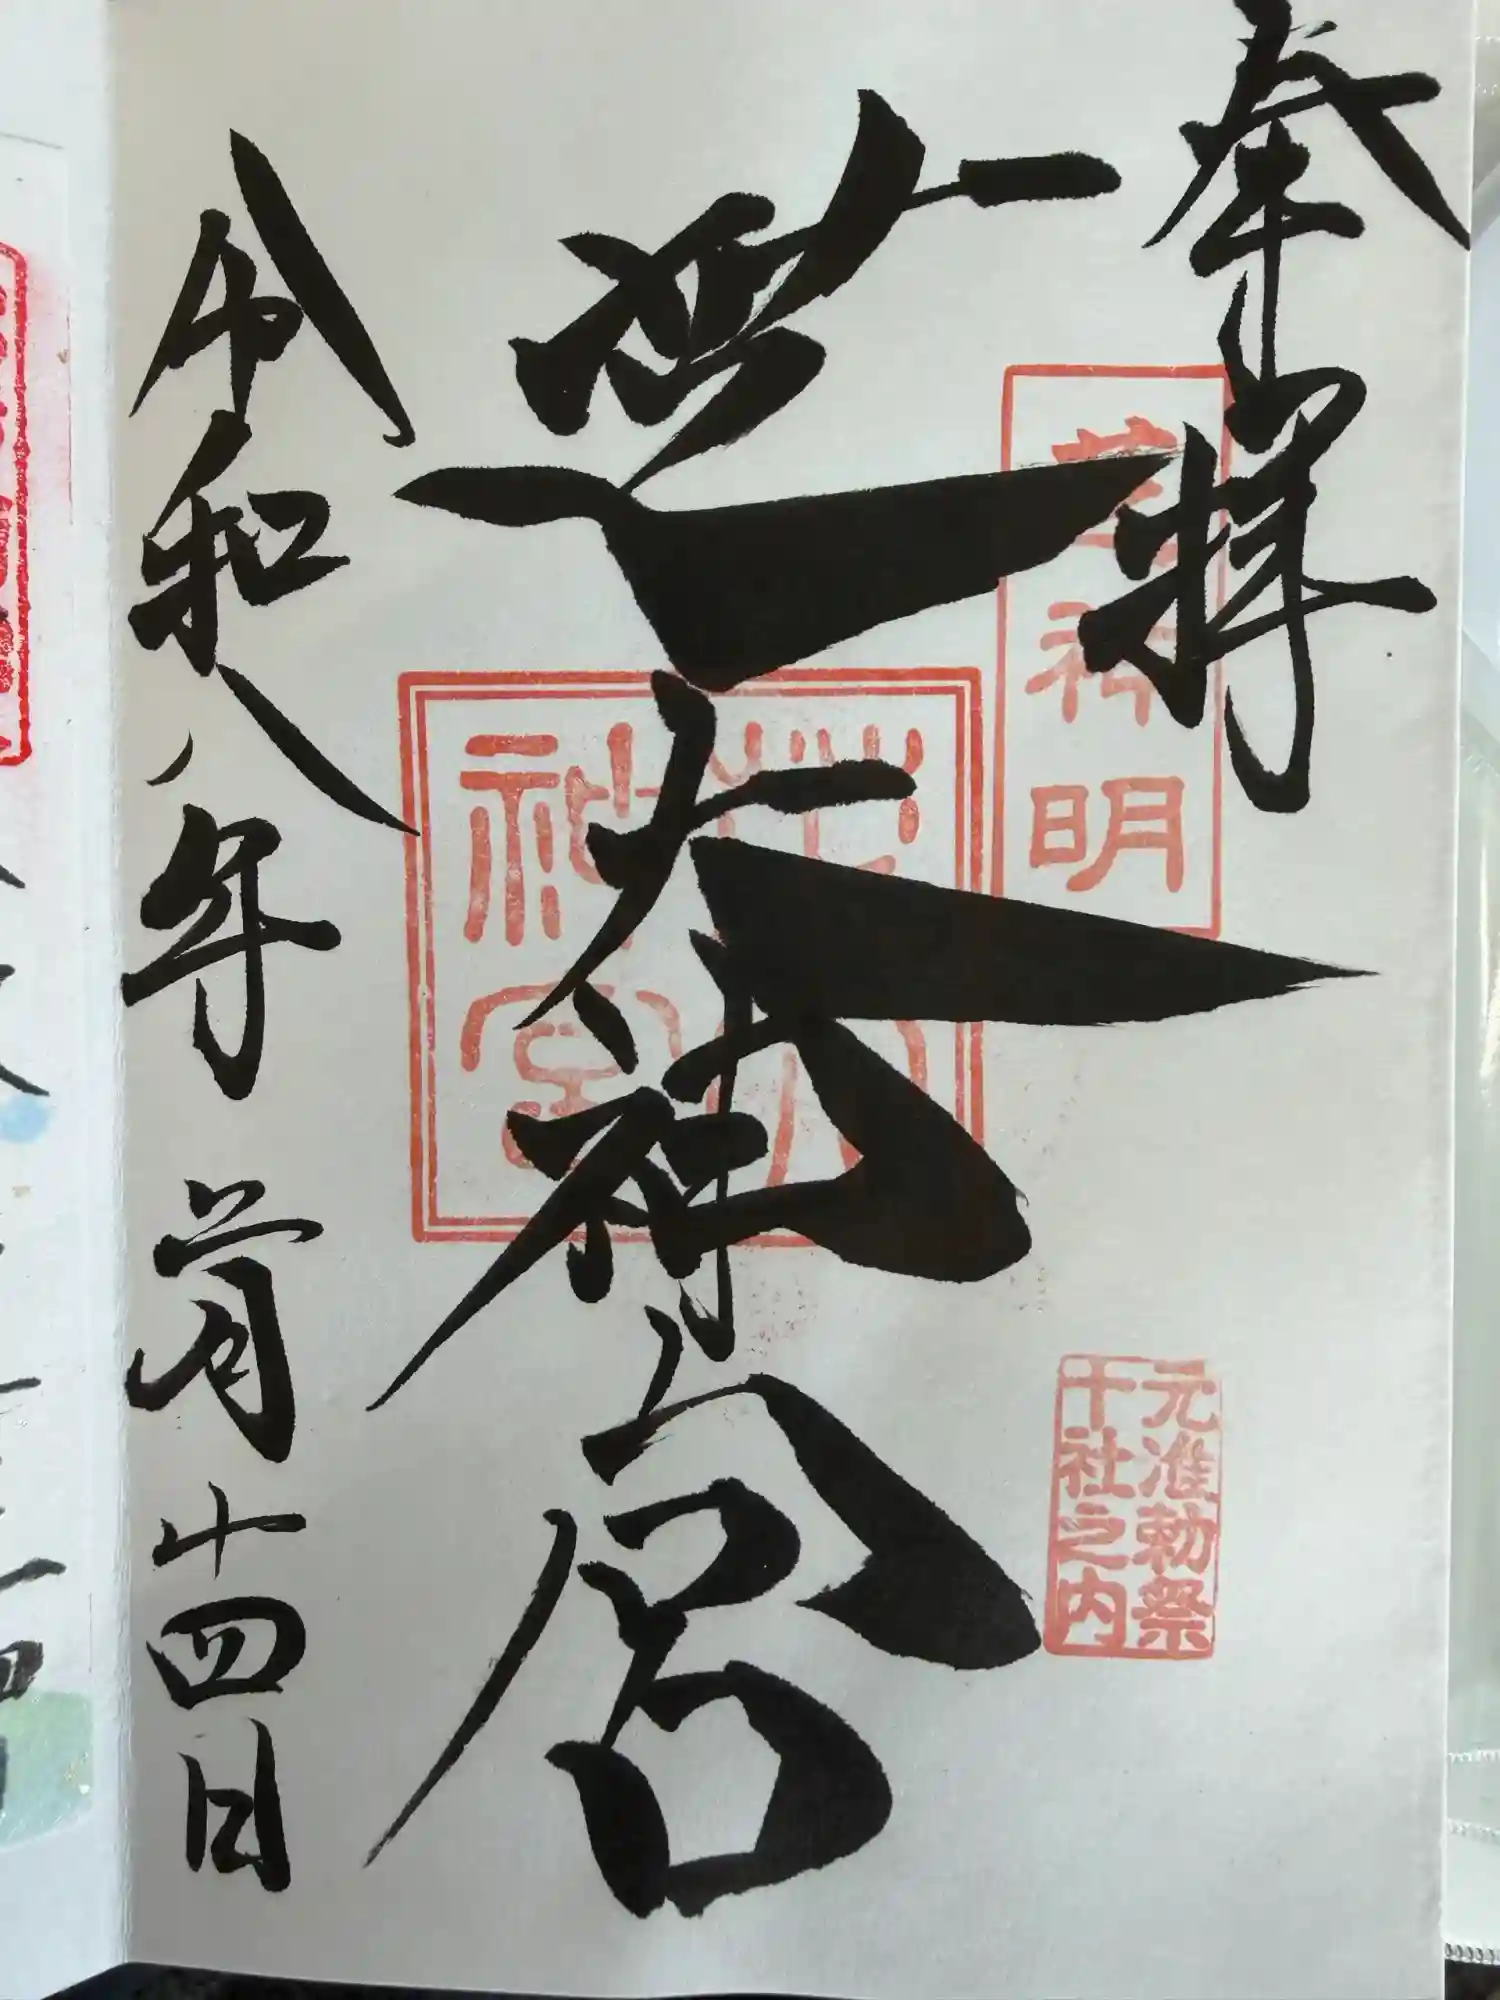 奉拝
芝大神宮
芝神明
芝大神宮
元准勅祭
十社之内
令和八年
月十四日